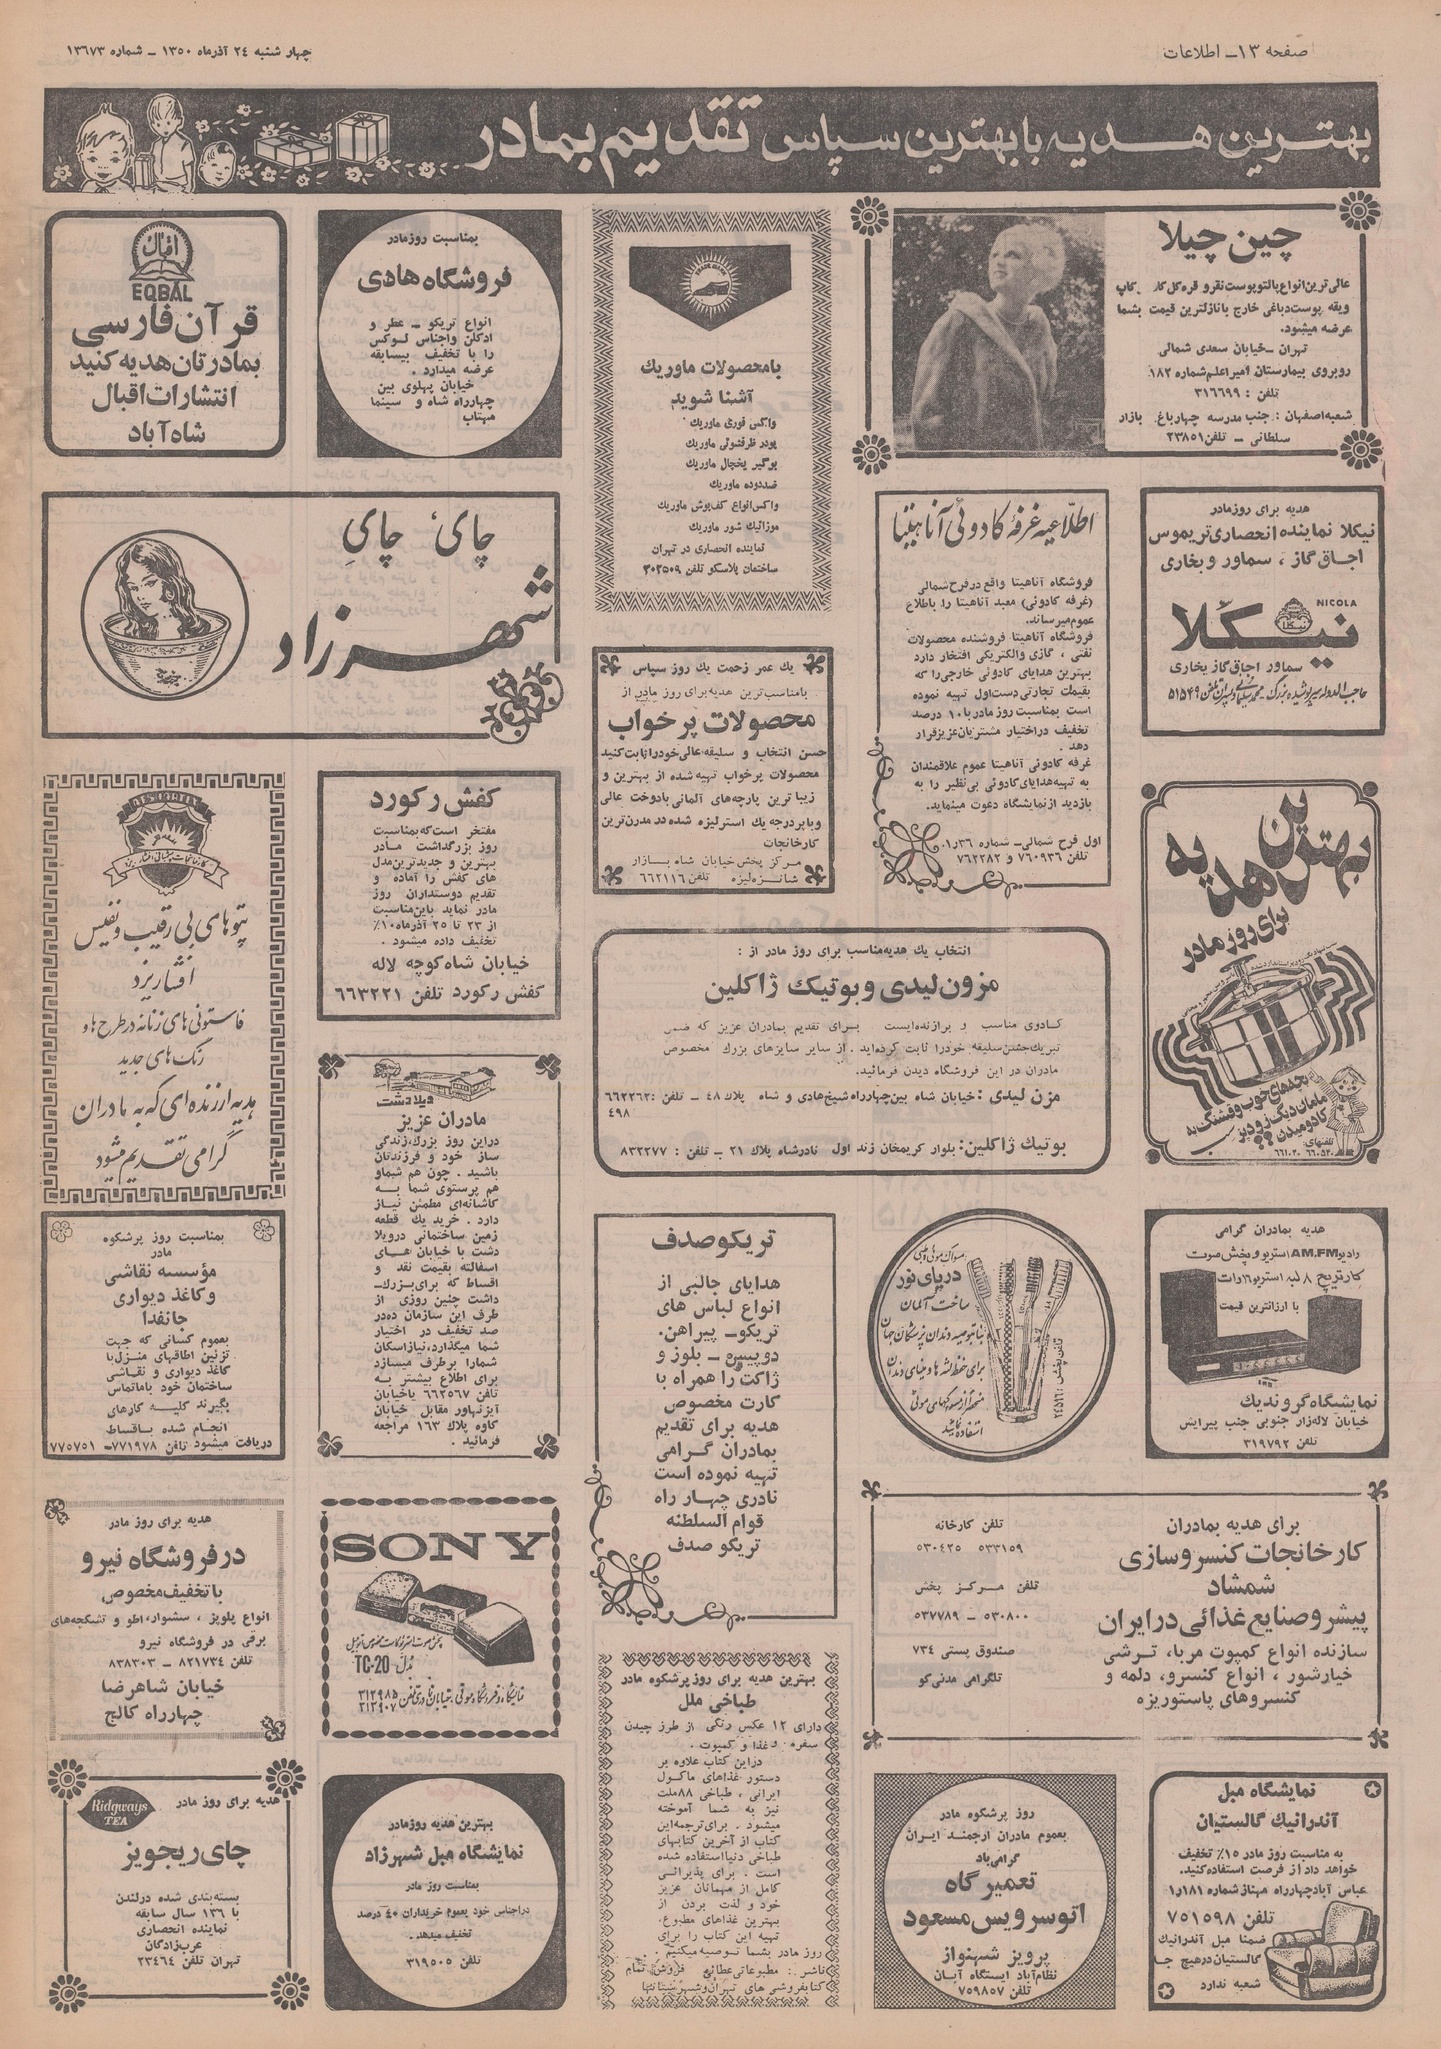 صفحه ۱۳ـ اطلاعات
چهار شنبه ۲۴ آذرماه ۱۳۵۰ ـ شماره ۱۳۶۷۳
بهترین هدیه با بهترین سپاس تقدیم بمادر
چین چیلا
عالی‌ترین انواع پالتو پوست نقره و قره گل کلاه کاپ
ویقه پوست دباغی خارج با نازلترین قیمت بشما
عرضه میشود.
تهران ـ خیابان سعدی شمالی
روبروی بیمارستان امیراعلم شماره ۱۸۲
تلفن : ۳۱۶۶۹۹
شعبه اصفهان : جنب مدرسه چهارباغ بازار
سلطانی ـ تلفن ۲۳۸۵۱
بامحصولات ماوریك
آشنا شوید
واکس فوری ماوریك
پودر ظرفشوئی ماوریك
بوگیر یخچال ماوریك
ضددوده ماوریك
واکس انواع کفپوش ماوریك
موزائیك شور ماوریك
نماینده انحصاری در تهران
ساختمان پلاسکو تلفن ۳۰۲۵۰۹
بمناسبت روزمادر
فروشگاه هادی
انواع تریکو ـ عطر و
ادکلن واجناس لوکس
را با تخفیف بیسابقه
عرضه میدارد .
خیابان پهلوی بین
چهارراه شاه و سینما
مهتاب
اقبال
EQBAL
قرآن فارسی
بمادرتان هدیه کنید
انتشارات اقبال
شاه آباد
هدیه برای روزمادر
نیکلا نماینده انحصاری تریموس
اجاق گاز ، سماور وبخاری
NICOLA
نیکلا
سماور اجاق گاز بخاری
اطلاعیه غرفه کادوئی آناهیتا
فروشگاه آناهیتا واقع درفرح شمالی
(غرفه کادوئی) معبد آناهیتا را باطلاع
عموم میرساند.
فروشگاه آناهیتا فروشنده محصولات
نفتی ، گازی والکتریکی افتخار دارد
بهترین هدایای کادوئی خارجی را که
بقیمت تجارتی دست اول تهیه نموده
است بمناسبت روز مادر با ۱۰ درصد
تخفیف دراختیار مشتریان عزیز قرار
دهد .
غرفه کادوئی آناهیتا عموم علاقمندان
به تهیه هدایای کادوئی بی‌نظیر را به
بازدید از نمایشگاه دعوت مینماید.
اول فرح شمالی ـ شماره ۱٫۳۶
تلفن ۷۶۰۹۳۶ و ۷۶۲۲۸۲
چای ، چایِ
شهرزاد
یك عمر زحمت یك روز سپاس
بامناسب‌ترین هدیه برای روز مادر از
محصولات پرخواب
حسن انتخاب و سلیقه عالی خودرا ثابت کنید
محصولات پرخواب تهیه شده از بهترین و
زیبا ترین پارچه‌های آلمانی بادوخت عالی
وباپر درجه یك استرلیزه شده در مدرن‌ترین
کارخانجات
مرکز پخش خیابان شاه بازار
شانزه‌لیزه تلفن ۶۶۲۱۱۶
بهترین هدیه
برای روز مادر
بچه‌های خوب و قشنگ به
مامان دیگ زودپز
کادو میدن
تلفنهای:
کفش رکورد
مفتخر است که بمناسبت
روز بزرگداشت مادر
بهترین و جدیدترین مدل
های کفش را آماده و
تقدیم دوستداران روز
مادر نماید باین مناسبت
از ۲۳ تا ۲۵ آذرماه ۱۰٪
تخفیف داده میشود .
خیابان شاه کوچه لاله
کفش رکورد تلفن ۶۶۳۲۲۱
پتوهای بی رقیب و نفیس
افشار یزد
فاستونی های زنانه در طرح ها و
رنگ های جدید
هدیه ارزنده ای که به مادران
گرامی تقدیم میشود
انتخاب یك هدیه مناسب برای روز مادر از :
مزون لیدی و بوتیك ژاکلین
کادوی مناسب و برازنده ایست برای تقدیم بمادران عزیز که ضمن
تبریك حسن سلیقه خودرا ثابت کرده‌اید . از سایر سایزهای بزرك مخصوص
مادران در این فروشگاه دیدن فرمائید.
مزن لیدی : خیابان شاه بین چهارراه شیخ هادی و شاه پلاك ۴۸ ـ تلفن : ۶۶۲۲۶۲
۴۹۸
بوتیك ژاکلین: بلوار کریمخان زند اول نادرشاه پلاك ۲۱ ـ تلفن : ۸۳۲۲۷۷
ویلا دشت
مادران عزیز
دراین روز بزرك، زندگی
ساز خود و فرزندتان
باشید . چون هم شما و
هم پرستوی شما به
کاشانه‌ای مطمئن نیاز
دارد . خرید یك قطعه
زمین ساختمانی درویلا
دشت با خیابان های
اسفالته بقیمت نقد و
اقساط که برای بزرك‌ـ
داشت چنین روزی از
طرف این سازمان ده در
صد تخفیف در اختیار
شما میگذارد، نیاز اسکان
شمارا برطرف میسازد
برای اطلاع بیشتر به
تلفن ۶۶۲۵۶۷ یاخیابان
آیزنهاور مقابل خیابان
کاوه پلاك ۱۶۳ مراجعه
فرمائید .
بمناسبت روز پرشکوه
مادر
مؤسسه نقاشی
وکاغذ دیواری
جانفدا
بعموم کسانی که جهت
تزئین اطاقهای منزل با
کاغذ دیواری و نقاشی
ساختمان خود باماتماس
بگیرند کلیه کارهای
انجام شده باقساط
دریافت میشود تلفن ۷۷۱۹۷۸ـ ۷۷۵۷۵۱
هدیه بمادران گرامی
رادیو AM.FM استریو و پخش صوت
کارتریج ۸ لبه استریو ۱۶ وات
با ارزانترین قیمت
نمایشگاه گروندیك
خیابان لاله‌زار جنوبی جنب پیرایش
تلفن ۳۱۹۷۹۲
مسواک موئی طبی
دریای نور
ساخت آلمان
بنا بتوصیه دندان پزشکان جهان
برای حفظ لثه ها و مینای دندان
منحصراً از مسواکهای موئی
استفاده نمائید
تلفن پخش :
تریکو صدف
هدایای جالبی از
انواع لباس های
تریکو ـ پیراهن،
دوپیس ـ بلوز و
ژاکت را همراه با
کارت مخصوص
هدیه برای تقدیم
بمادران گرامی
تهیه نموده است
نادری چهار راه
قوام السلطنه
تریکو صدف
برای هدیه بمادران
کارخانجات کنسروسازی
شمشاد
پیشرو صنایع غذائی در ایران
سازنده انواع کمپوت مربا، ترشی
خیارشور ، انواع کنسرو، دلمه و
کنسروهای پاستوریزه
تلفن کارخانه
۵۳۳۱۵۹ ۵۳۰۴۲۵
تلفن مرکز پخش
۵۳۰۸۰۰ ـ ۵۳۷۷۸۹
صندوق پستی ۷۳۴
تلگرامی مدنی‌کو
SONY
TC-20
هدیه برای روز مادر
درفروشگاه نیرو
باتخفیف مخصوص
انواع پلوپز ، سشوار، اطو و تشکچه‌های
برقی در فروشگاه نیرو
تلفن ۸۲۱۷۳۴ ـ ۸۳۸۳۰۳
خیابان شاهرضا
چهارراه کالج
بهترین هدیه برای روز پرشکوه مادر
طباخی ملل
دارای ۱۲ عکس رنگی از طرز چیدن
سفره و غذا و کمپوت .
دراین کتاب علاوه بر
دستور غذاهای ماکول
ایرانی ، طباخی ۸۸ ملت
نیز به شما آموخته
میشود . برای ترجمه این
کتاب از آخرین کتابهای
طباخی دنیا استفاده شده
است . برای پذیرائی
کامل از مهمانان عزیز
خود و لذت بردن از
بهترین غذاهای مطبوع،
تهیه این کتاب را برای
روز مادر بشما توصیه میکنیم .
ناشر : مطبوعاتی عطائی فروش تمام
کتابفروشی های تهران وشهرستانها
نمایشگاه مبل
آندرانیك گالستیان
به مناسبت روز مادر ۱۵٪ تخفیف
خواهد داد از فرصت استفاده کنید.
عباس آباد چهارراه مهناز شماره ۱۸۱ر۱
تلفن ۷۵۱۵۹۸
ضمنا مبل آندرانیك
گالستیان درهیچ جا
شعبه ندارد
روز پرشکوه مادر
بعموم مادران ارجمند ایران
گرامی‌باد
تعمیر گاه
اتوسرویس مسعود
پرویز شهنواز
نظام‌آباد ایستگاه آبان
تلفن ۷۵۹۸۵۷
بهترین هدیه روزمادر
نمایشگاه مبل شهرزاد
بمناسبت روز مادر
دراجناس خود بعموم خریداران ۴۰ درصد
تخفیف میدهد .
تلفن ۳۱۹۵۰۵
Ridgways
TEA
هدیه برای روز مادر
چای ریجویز
بسته‌بندی شده درلندن
با ۱۳۶ سال سابقه
نماینده انحصاری
عرب‌زادگان
تهران تلفن ۲۳۴۶۴